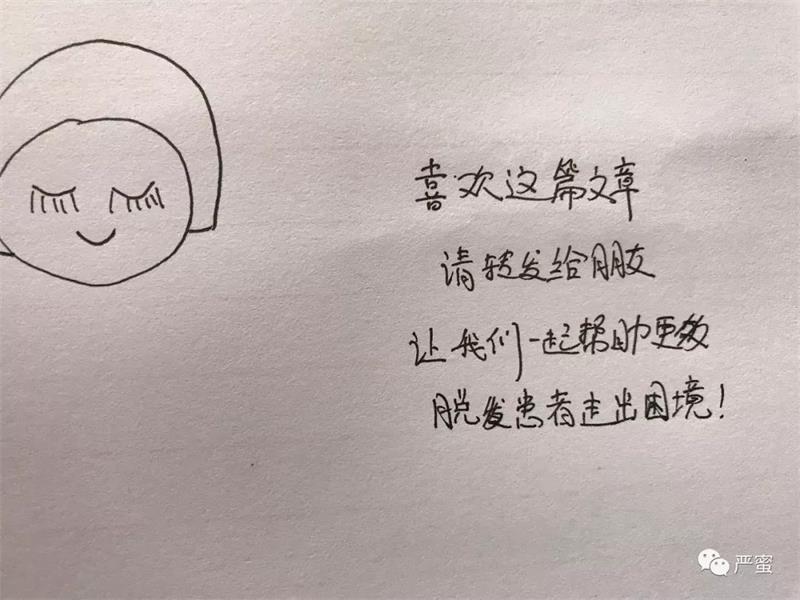 喜欢这篇文章
请转发给朋友
让我们一起帮助更多
脱发患者走出困境！
严蜜